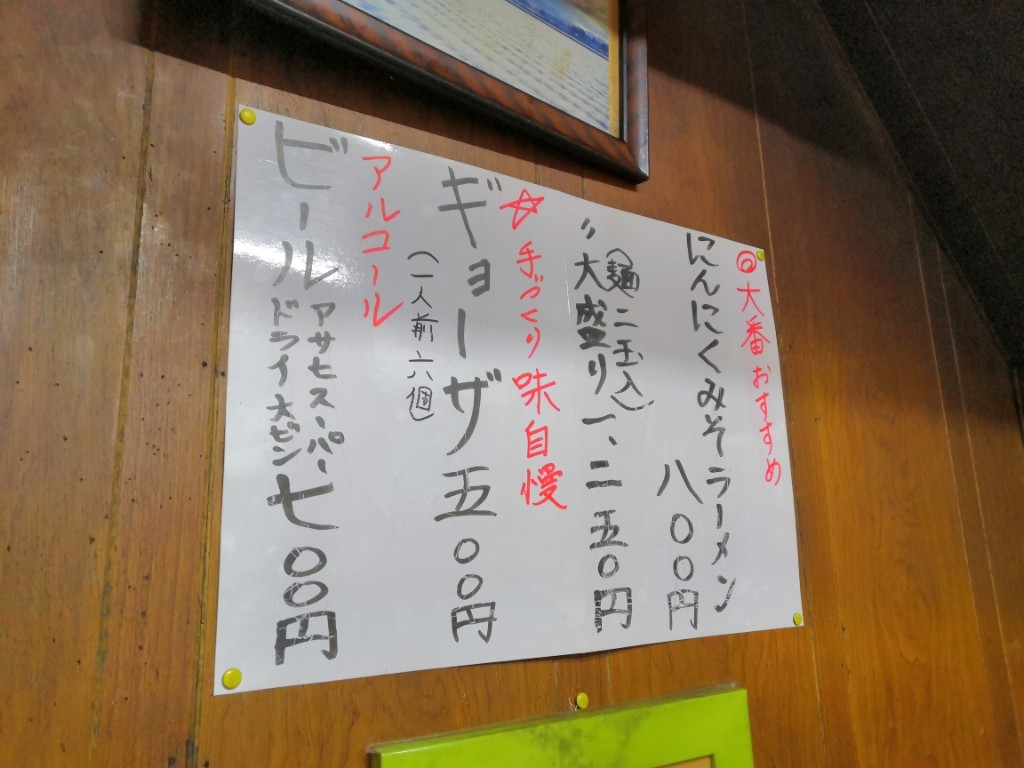 ◎大番おすすめ
にんにくみそラーメン
八〇〇円
(麺二玉入)
〃大盛り一、二五〇円
☆手づくり味自慢
ギョーザ五〇〇円
(一人前六個)
アルコール
ビールアサヒスーパー
ドライ大ビン七〇〇円